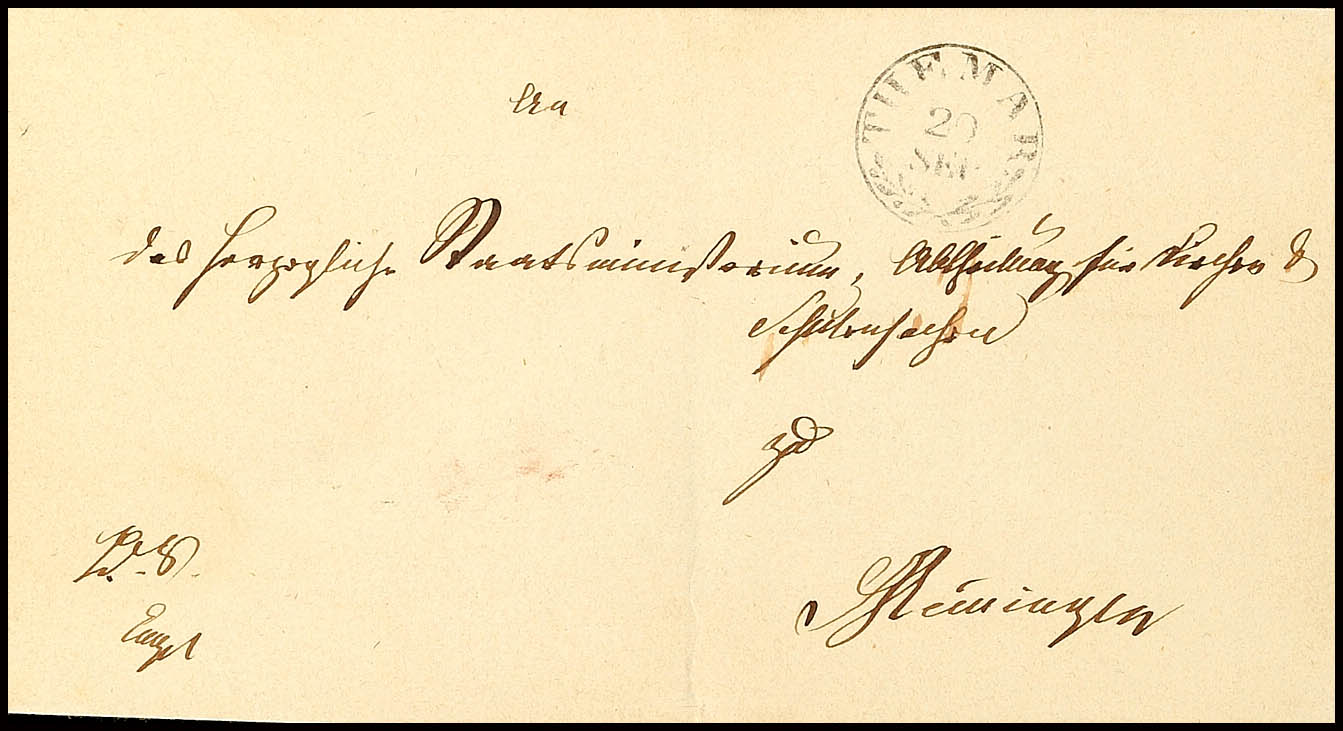 THEMAR
20
SEP
An
das Herzogliche Staatsministerium, Abtheilung für Kirchen &
Schulensachen
zu
Meiningen